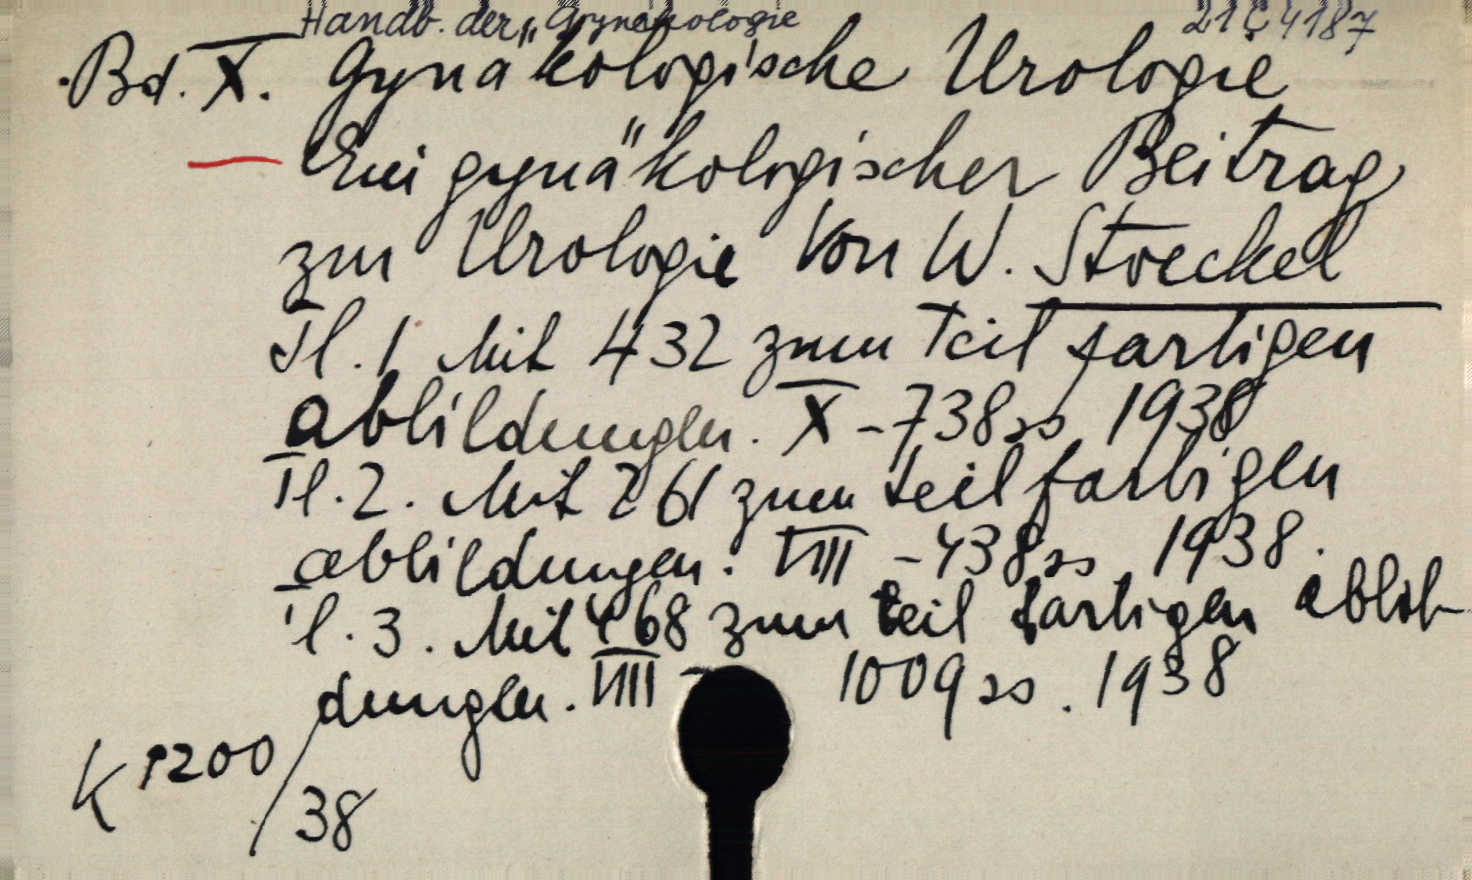 Handb. der Gynäkologie 21 C 4187
Bd. X. Gynäkologische Urologie
Ein gynäkologischer Beitrag
zur Urologie Von W. Stoeckel
Tl. 1 Mit 432 zum Teil farbigen
abbildungen. X - 738 ss 1938
Tl. 2. Mit 261 zum teil farbigen
abbildungen. VIII - 438 ss 1938.
Tl. 3. Mit 468 zum teil farbigen abbil-
dungen. VIII - 1009 ss. 1938
K 1200/38